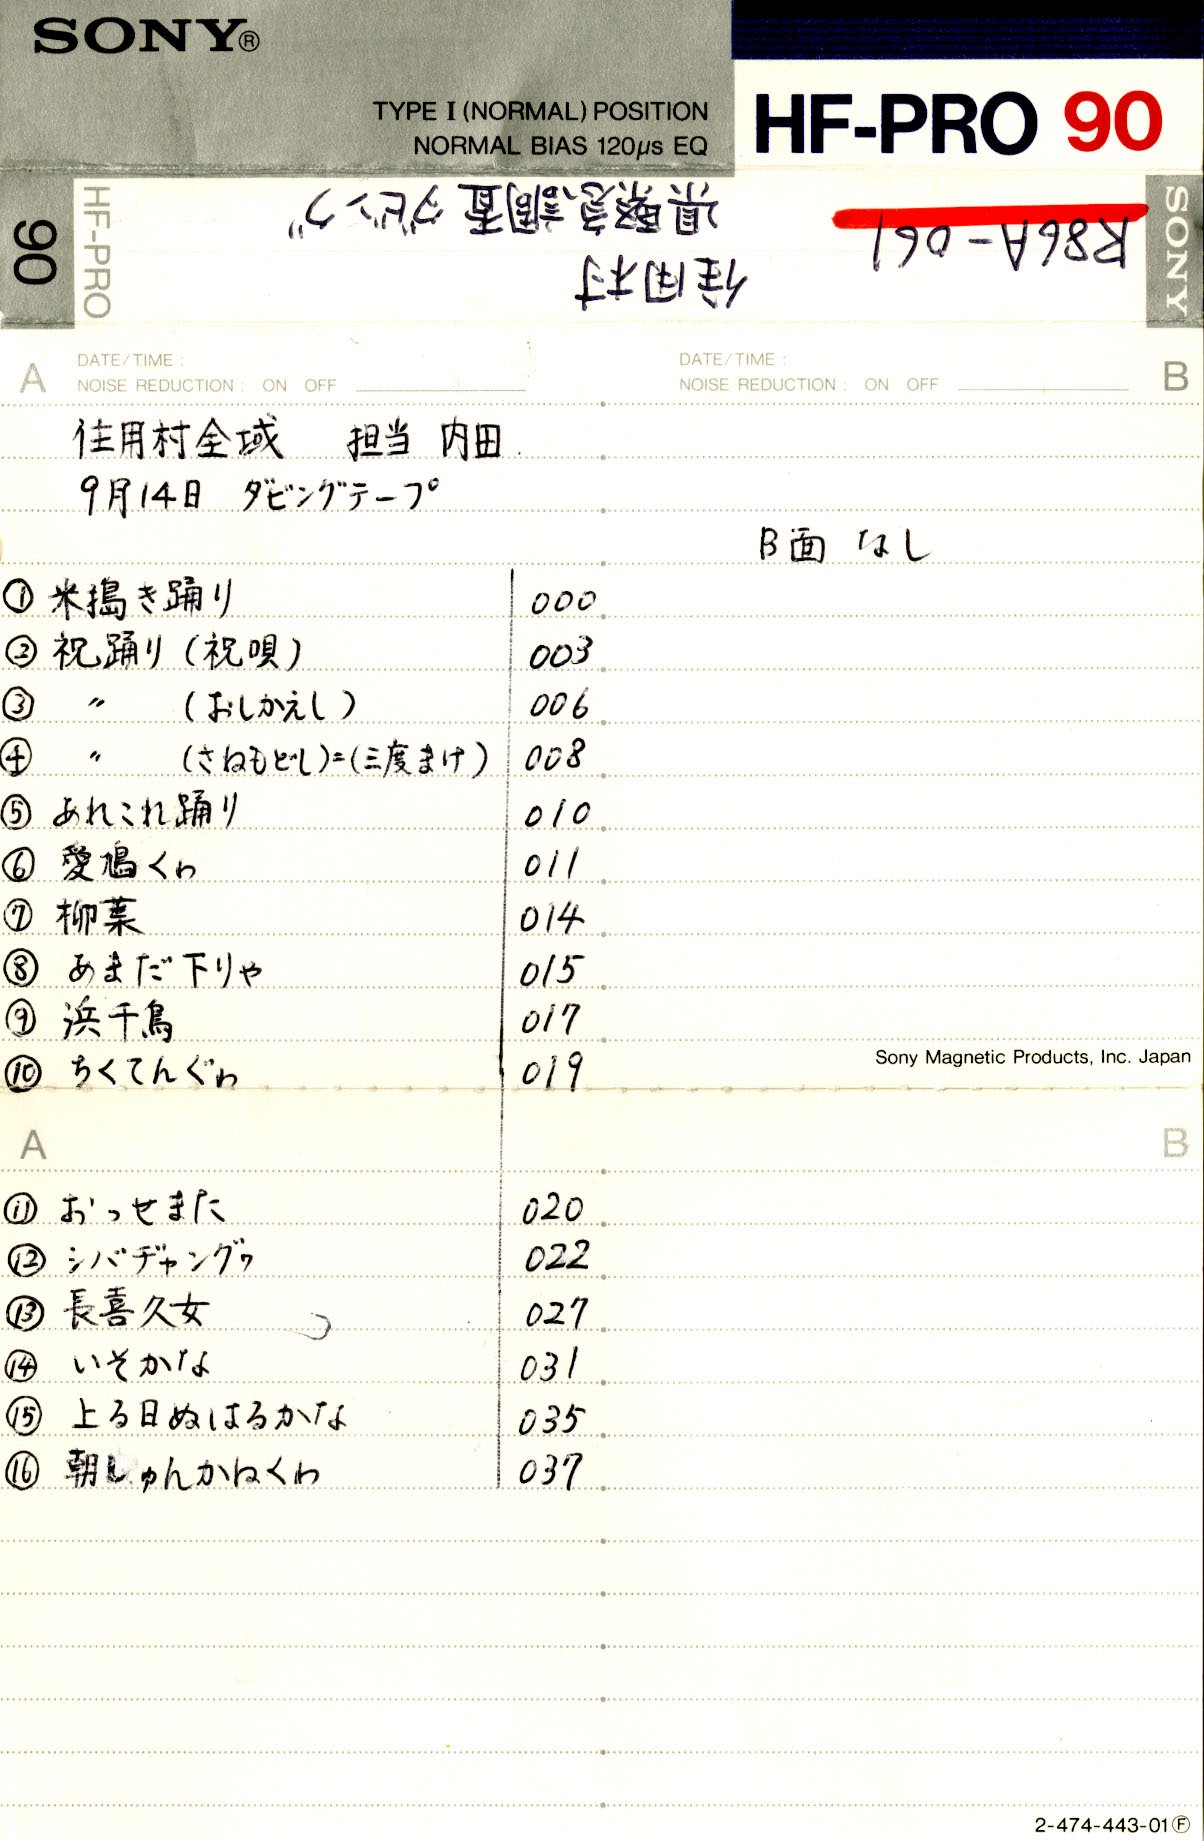 SONY®
TYPE I (NORMAL) POSITION
NORMAL BIAS 120μs EQ
HF-PRO 90
90
HF-PRO
R86A-061
県緊急調査 ダビング
住用村
SONY
A
DATE/TIME :
NOISE REDUCTION : ON OFF
DATE/TIME :
NOISE REDUCTION : ON OFF
B
住用村全域 担当 内田
9月14日 ダビングテープ
B面 なし
① 米搗き踊り 000
② 祝踊り (祝唄) 003
③ 〃 (おしかえし) 006
④ 〃 (さねもどし)=(三度まけ) 008
⑤ あれこれ踊り 010
⑥ 愛鳩くゎ 011
⑦ 柳葉 014
⑧ あまだ下りゃ 015
⑨ 浜千鳥 017
⑩ ちくてんぐゎ 019
Sony Magnetic Products, Inc. Japan
A
B
⑪ おっせまた 020
⑫ シバヂャングヮ 022
⑬ 長喜久女 027
⑭ いそかな 031
⑮ 上る日ぬはるかな 035
⑯ 朝しゅんかねくゎ 037
2-474-443-01Ⓕ